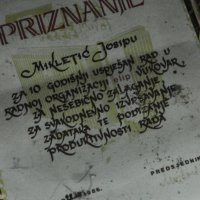 PRIZNANJE
MIKLETIĆ JOSIPU
ZA 10 GODIŠNJI USPJEŠAN RAD U
RADNOJ ORGANIZACIJI VUKOVAR.
ZA NESEBIČNO ZALAGANJE
ZA SVAKODNEVNO IZVRŠAVANJE
ZADATAKA TE PODIZANJE
PRODUKTIVNOSTI RADA
PREDSJEDNIK